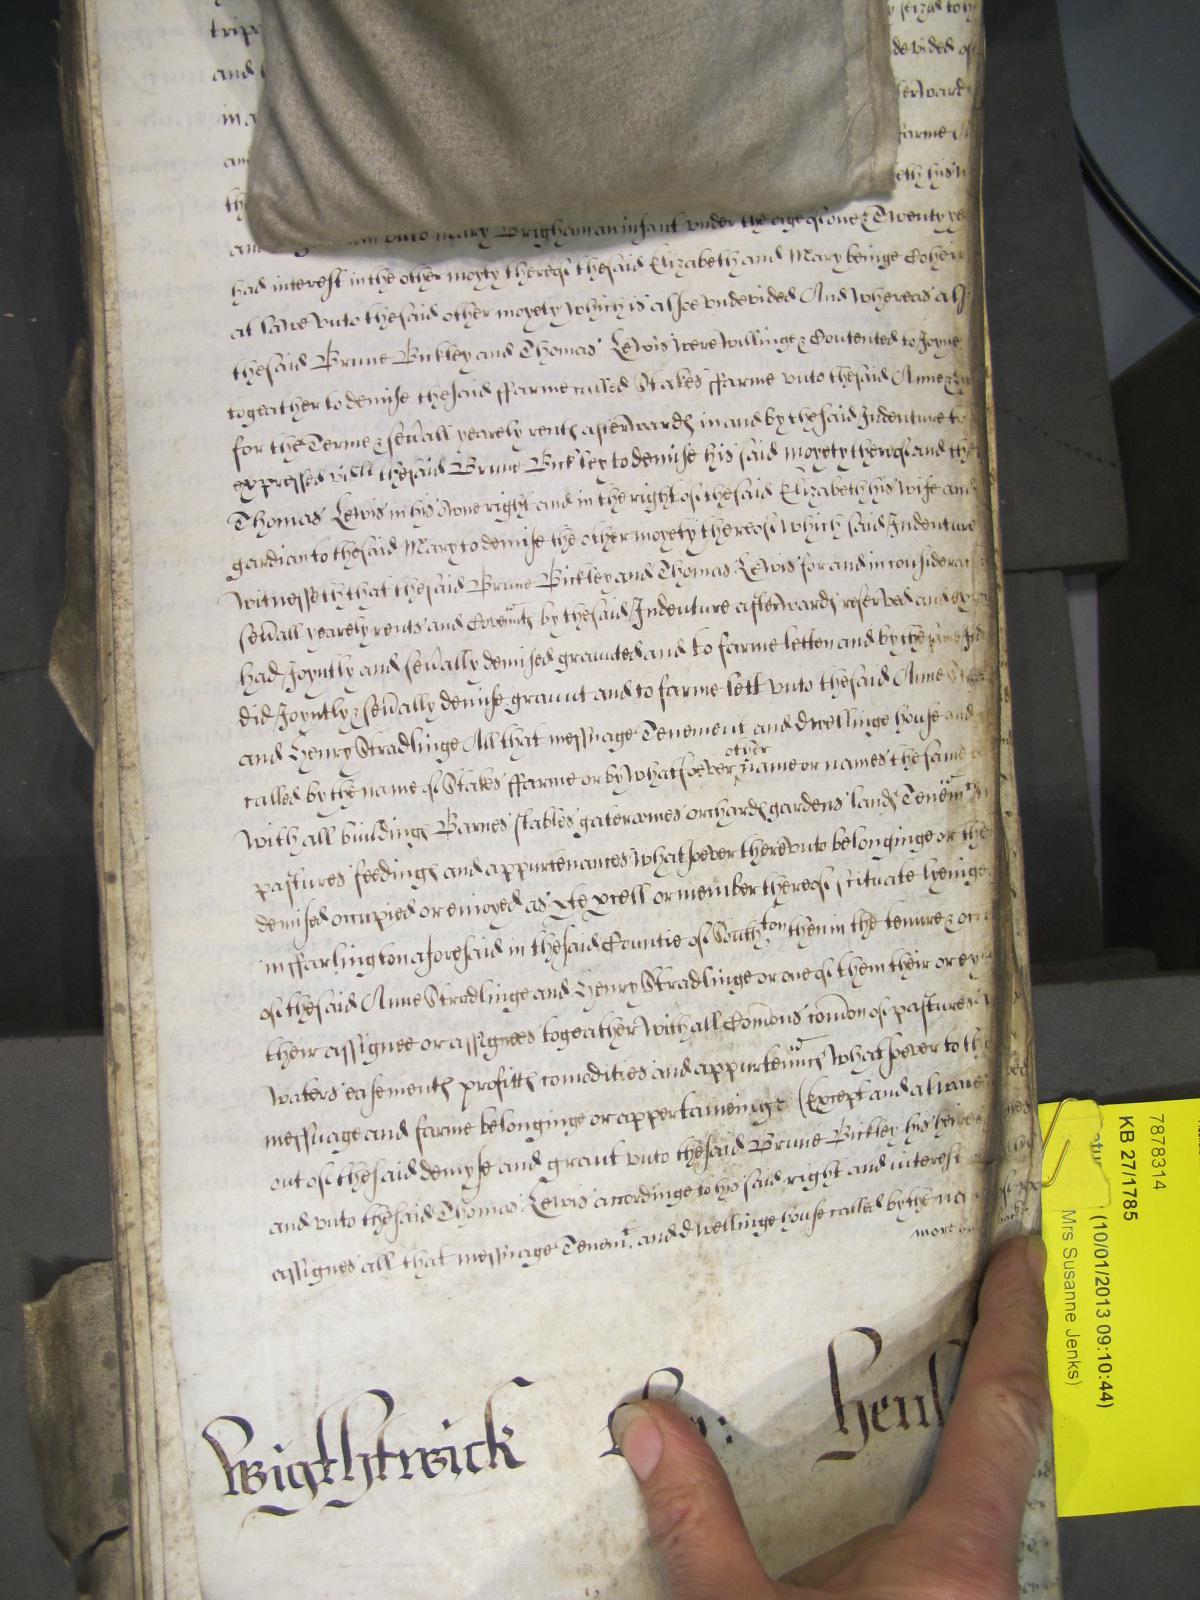 and
in a
and
vnto Mary Brigham an infant vnder the age of one & Twenty
had interest in the other moyty thereof the said Elizabeth and Mary beinge Coheir
at lawe vnto the said other moyety which is alsoe vndevided And whereas
the said Brune Bickley and Thomas Lewis were willinge & Contented to Joyne
togeather to demise the said ffarme called Stakes ffarme vnto the said Anne
for the Terme & seu'all yearely rents afterwards in and by the said Indenture
expressed vizt the said Brune Bickley to demise his said moyety thereof and the
Thomas Lewis in his owne right and in the right of the said Elizabeth his wife and
gardian to the said Mary to demise the other moyety thereof Which said Indenture
Witnesseth that the said Brune Bickley and Thomas Lewis for and in considerac
seu'all yearely rents and Coven'ts by the said Indenture afterwards reserved and
had Joyntly and seu'ally demised graunted and to farme letten and by the same Ind
did Joyntly & seu'ally demise graunt and to farme lett vnto the said Anne
and Henry Stradlinge All that messuage Tenement and dwellinge house and
called by the name of Stakes ffarme or by whatsoever other name or names the same
With all buildings Barnes stables orchards gardens lands Tenem'ts
pastures feedings and appurtenances whatsoever therevnto belonginge or
demised occupied or enioyed as pte pcell or member thereof scituate lyeinge
in ffarlington aforesaid in the said Countie of South'ton then in the tenure &
of the said Anne Stradlinge and Henry Stradlinge or one of them their or
their assignee or assignees togeather with all Comons comon of pastures
waters easements profitts comodities and appurten'nces whatsoever to the
messuage and farme belonginge or appertaineinge (Except and alwaies
out of the said demyse and grant vnto the said Brune Bickley his heires
and vnto the said Thomas Lewis accordinge to his said right and interest
assignes all that messuage Tenem't and dwellinge house called by the
more on back
Wightwick
7878314
KB 27/1785
(10/01/2013 09:10:44)
Mrs Susanne Jenks)